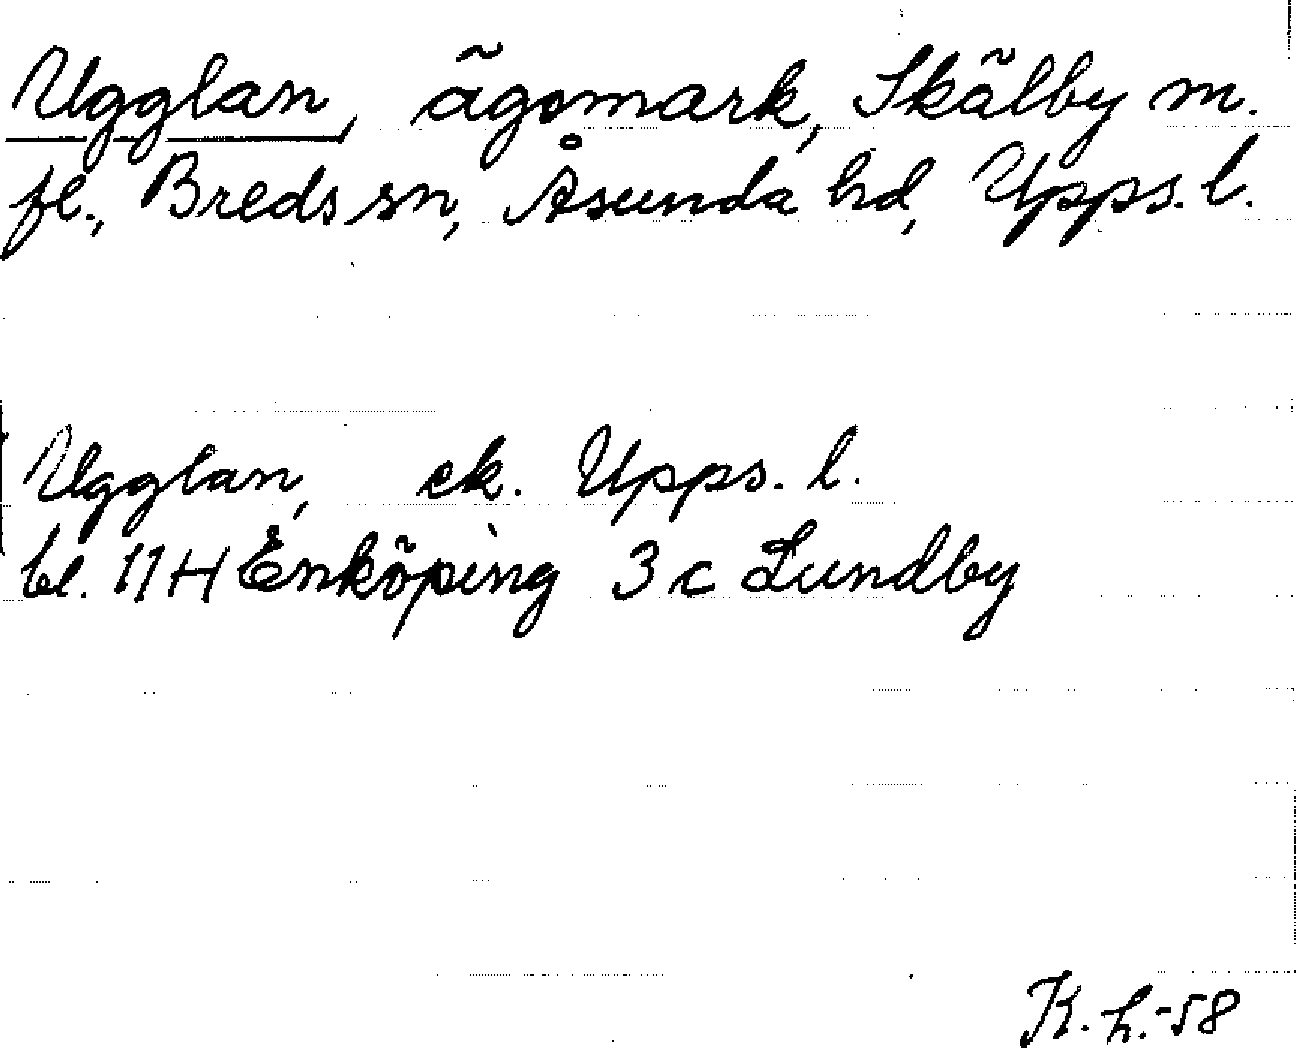 Ugglan, ägomark, Skälby m.
fl., Breds sn, Åsunda hd, Upps. l.
Ugglan, ek. Upps. l.
bl. 11H Enköping 3 c Lundby
K. h.-58